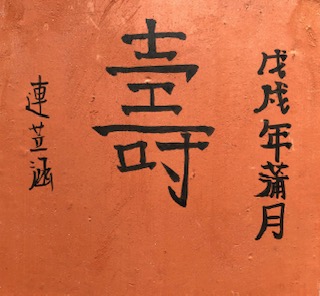 戊戌年蒲月
壽
連苙涵